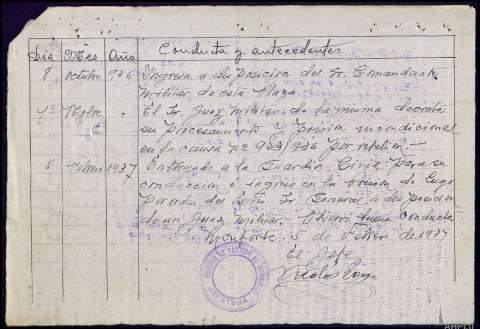 Dia Mes Año Conducta y antecedentes
8 octubre 936 Ingresa a disposicion del Sr. Comandante
Militar de esta Plaza.
1º " El Sr. Juez Militar de la misma decreta
su procesamiento y prision incondicional
en la causa nº 983/936 por rebelion.—
5 Febrero 1937 Entregado a la Guardia Civil para su
conduccion e ingreso en la Prision de Lugo
del Sr. General a disposicion
Juez Militar. Observó buena conducta
Monforte 5 de Febrero de 1937
El Jefe
PRISION DE PARTIDO DE MONFORTE
JEFATURA